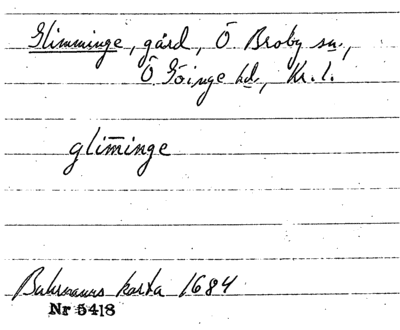 Glimminge, gård, Ö Broby sn.,
Ö Göinge hd., Kr. l.
glim̅inge
Buhrmanns karta 1684
Nr 5418